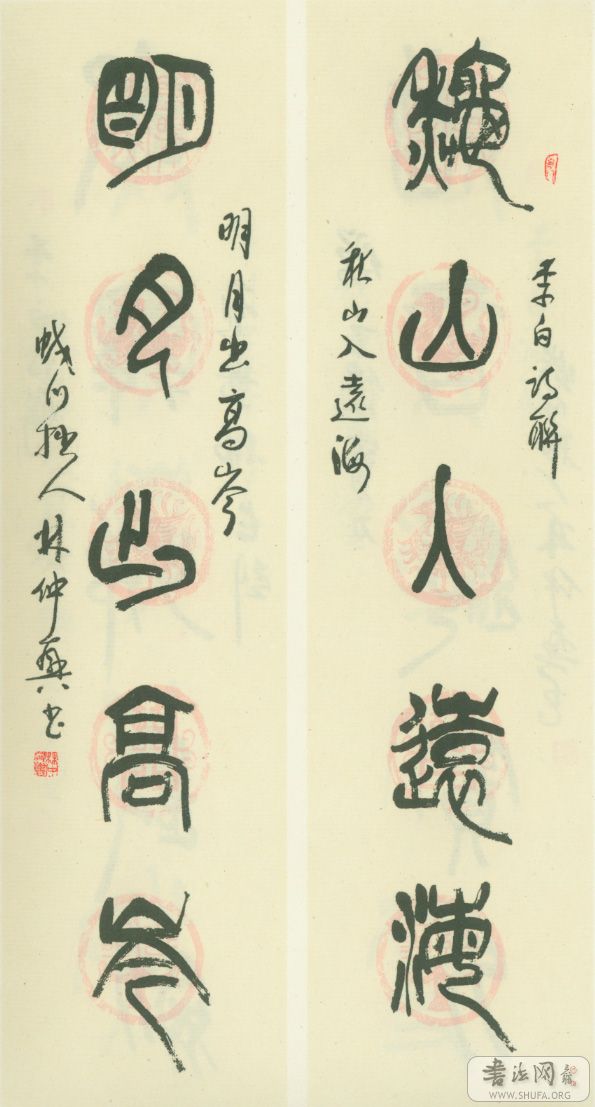 龝山入遠海
李白詩聯
秋山入遠海
明月出高岑
明月出高岑
蛟川拙人林仲興書
書法网
WWW.SHUFA.ORG